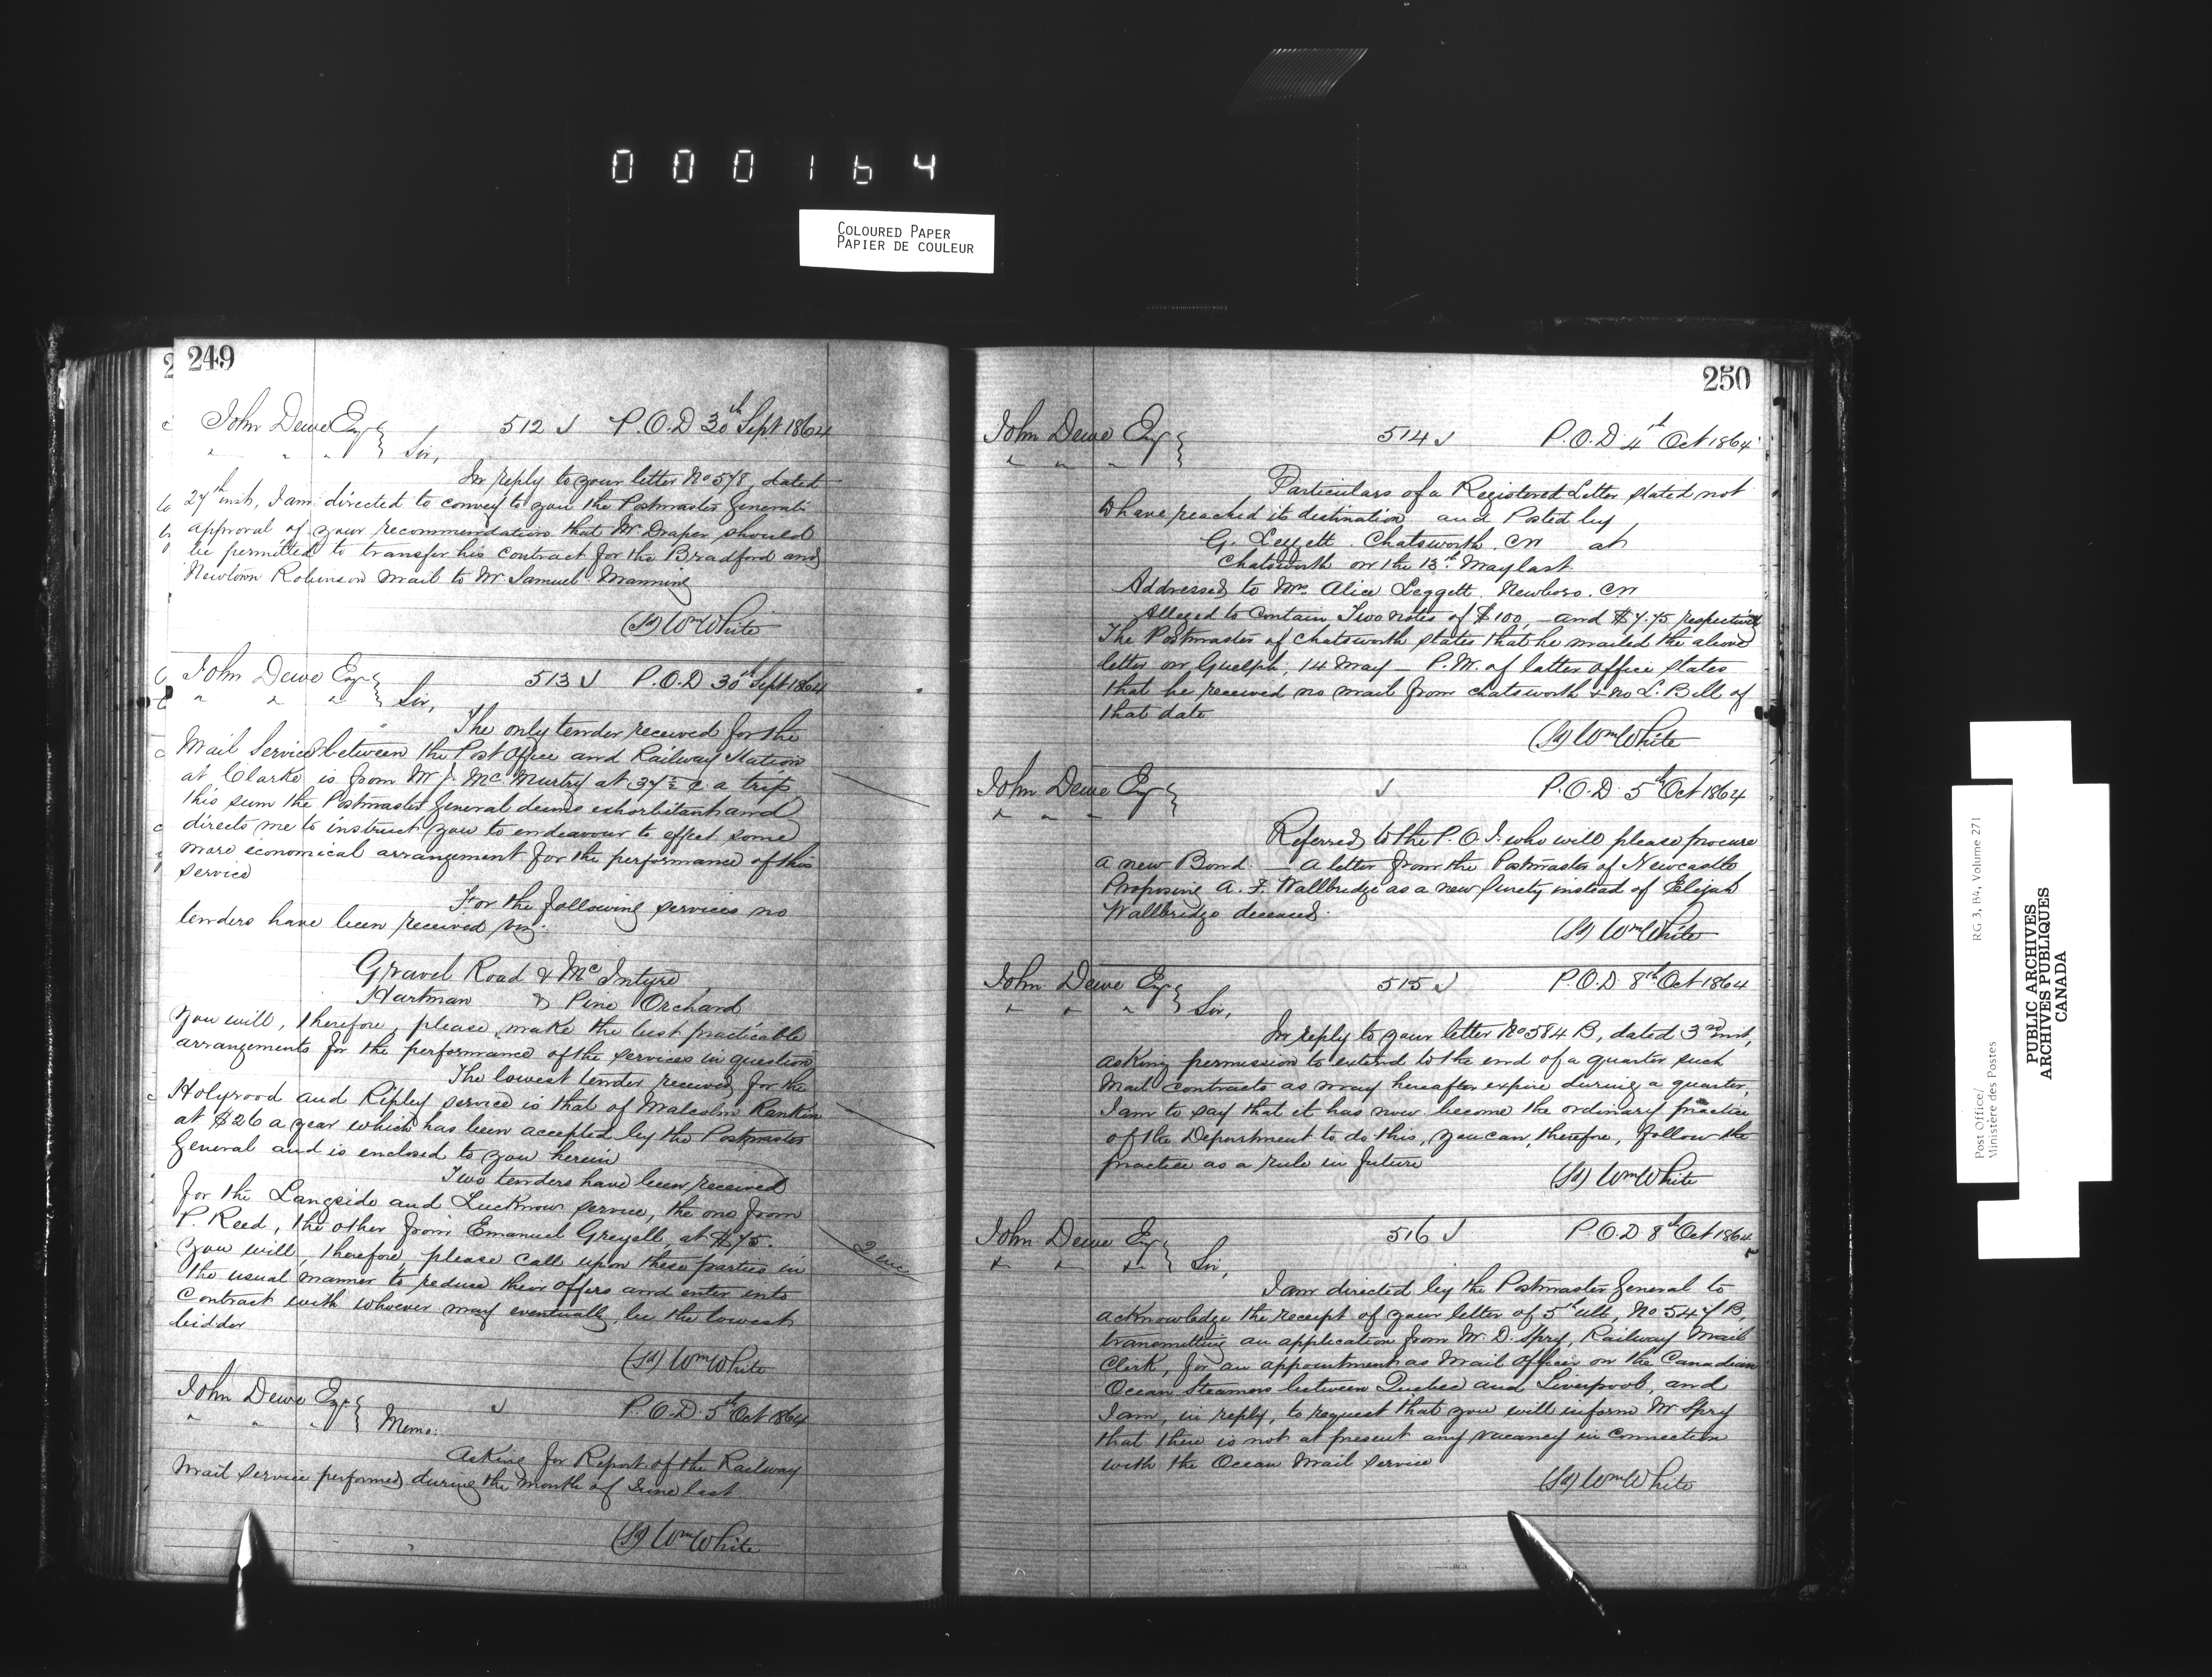 000164
COLOURED PAPER
PAPIER DE COULEUR
249
John Dewe Esq 512 J P.O.D 30th Sept 1864
" " " Sir,
In reply to your letter No 578, dated
27th inst, I am directed to convey to you the Postmaster Generals
approval of your recommendation that Mr Draper should
be permitted to transfer his contract for the Bradford and
Newtown Robinson mail to Mr Samuel Manning
(Sd) Wm White
John Dewe Esq 513 J P.O.D 30th Sept 1864
" " " Sir,
The only tender received for the
Mail Service between the Post Office and Railway Station
at Clarke is from Mr J. McMurtry at 37½ c. a trip
this sum the Postmaster General deems exhorbitant and
directs me to instruct you to endeavour to effect some
more economical arrangement for the performance of this
service
For the following services no
tenders have been received viz.
Gravel Road & McIntyre
Hartman & Pine Orchard
You will, therefore, please make the best practicable
arrangements for the performance of the services in question
The lowest tender received for the
Holyrood and Ripley service is that of Malcolm Rankin
at $26 a year which has been accepted by the Postmaster
General and is enclosed to you herein
Two tenders have been received
for the Langside and Lucknow service, the one from
P. Reed, the other from Emanuel Greyell, at $75.
2 enc
You will, therefore, please call upon these parties in
the usual manner to reduce their offers and enter into
Contract with whoever may eventually be the lowest
bidder
(Sd) Wm White
John Dewe Esq J P.O.D. 5th Oct 1864
" " " Memo:
Asking for Report of the Railway
Mail Service performed during the month of June last.
(Sd) Wm White
250
John Dewe Esq 514 J P.O.D. 4th Oct 1864
" " "
Particulars of a Registered Letter stated not
to have reached its destination and Posted by
G. Leggett. Chatsworth. CW at
Chatsworth on the 13th May last
Addressed to Mrs Alice Leggett. Newboro. CW
Alleged to Contain Two notes of $100, and $7.75 respectively
The Postmaster of Chatsworth states that he mailed the above
letter on Guelph, 14 May – P.M. of latter office states
that he received no mail from Chatsworth & no L. Bill of
that date
(Sd) Wm White
John Dewe Esq J P.O.D. 5th Oct 1864
" " "
Referred to the P.O.I. who will please procure
a new Bond. A letter from the Postmaster of Newcastle
Proposing A. F. Wallbridge as a new Surety instead of Elijah
Wallbridge deceased.
(Sd) Wm White
John Dewe Esq 515 J P.O.D. 8th Oct 1864
" " " Sir,
In reply to your letter No 584 B, dated 3rd inst,
asking permission to extend to the end of a quarter such
Mail contracts as may hereafter expire during a quarter,
I am to say that it has now become the ordinary practice
of the Department to do this, you can, therefore, follow the
practice as a rule in future
(Sd) Wm White
John Dewe Esq 516 J P.O.D 8th Oct 1864
" " " Sir,
I am directed by the Postmaster General to
acknowledge the receipt of your letter of 5th ult, No 547 B,
transmitting an application from Mr. D. Spry, Railway Mail
Clerk, for an appointment as Mail Officer on the Canadian
Ocean Steamers between Quebec and Liverpool, and
I am, in reply, to request that you will inform Mr Spry
that there is not at present any vacancy in Connection
with the Ocean Mail Service
(Sd) Wm White
Post Office/ RG 3, B4, Volume 271
Ministère des Postes
PUBLIC ARCHIVES
ARCHIVES PUBLIQUES
CANADA